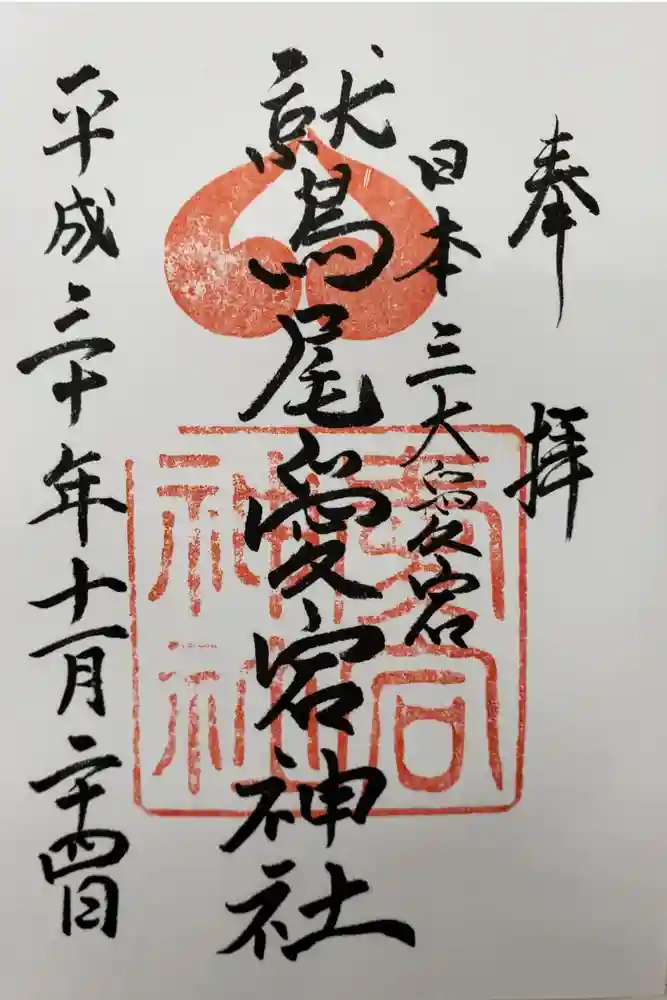 奉拝
日本三大愛宕
鷲尾愛宕神社
平成三十年十一月二十四日
愛宕
神社